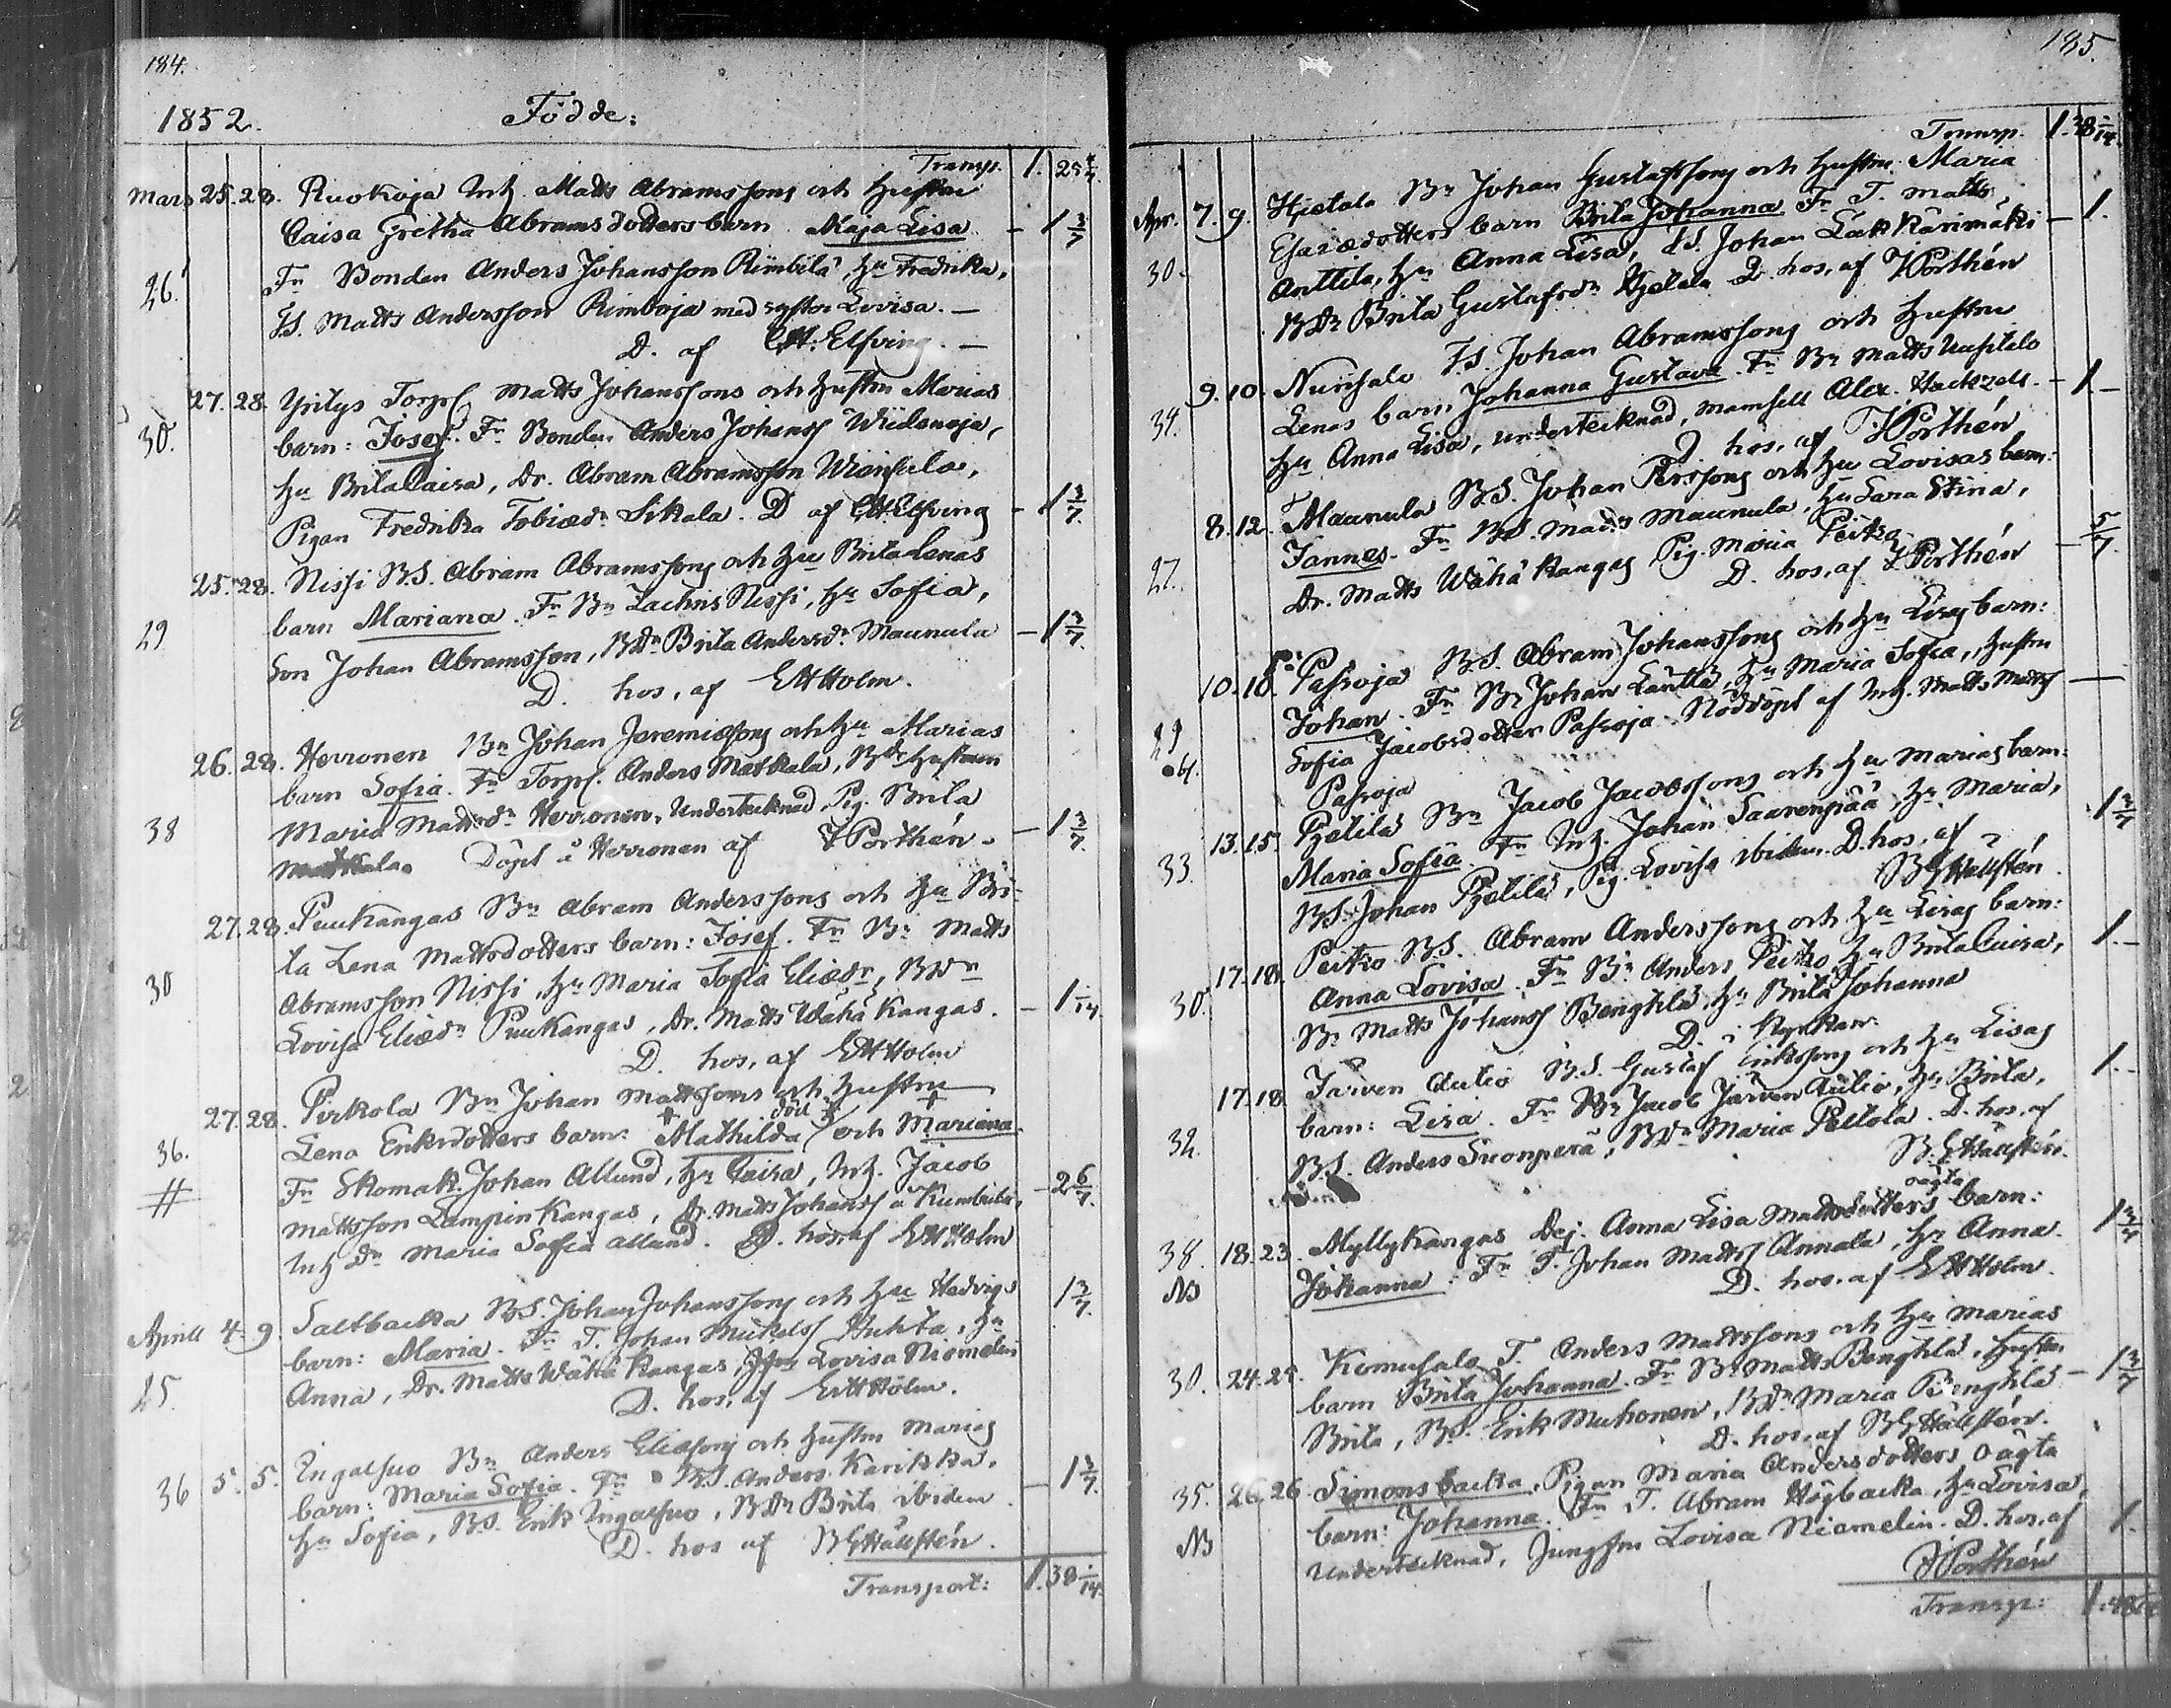 184.
1852. Födde:
Transp. 1. 25 4/7.
Mars 25. 28. Ruokoja Inh. Matts Abramssons och hustru
Caisa Gretha Abramsdotters barn Maja Lisa. - 1 3/7
26. Fr Bonden Anders Johansson Rimbilä hu Fredrika,
BS. Matts Andersson Rimboja med syster Lovisa. -
D. af CH: Elfving. -
27. 28. Yritys Torpf Matts Johanssons och hustru Marias
30. barn: Josef. Fr Bonden Anders Johanss Wiidanoja,
hu Brita Caisa, Dr. Abram Abramsson Wiinsula,
Pigan Fredrika Tobiædr Sikala. D af CH Elfving - 1 3/7.
25. 28. Nissi BS. Abram Abramssons och hu Brita Lenas
29 barn Mariana. Fr Bn Zachris Nissi, hu Sofia,
Son Johan Abramsson, BDr Brita Andersdr Maunula - 1 3/7.
D. hos, af EHHolm.
26. 28. Herronen Bn Johan Jeremiæsons och hu Marias
barn Sofia. Fr Torpf. Anders Matkala, BS hustrun
38 Maria Mattsdr Herronen, Undertecknad, Pig. Brita
Matkala. Döpt i Herronen af FPorthén. - 1 3/7.
27. 28. Puukangas Bn Abram Anderssons och hu Bri-
ta Lena Mattsdotters barn: Josef. Fr Bn Matts
30 Abramsson Nissi, hu Maria Sofia Eliædr, BDr
Lovisa Eliædr Puukangas, Dr. Matts Wähäkangas. - 1 1/14.
D. hos, af EHHolm
27. 28. Pirkola Bn Johan Mattssons och hustru
36. Lena Eriksdotters barn: Mathilda död och Mariana.
# Fr Skomak. Johan Allund, hu Caisa, Inh. Jacob
Mattsson Lampinkangas, Dr. Matts Johanss a Kumbula, - 2 6/7.
Inh Dr Maria Sofia Allund. D. hos af EHHolm
Aprill 4. 9. Saltbacka BS. Johan Johanssons och hu Hedvigs 1 3/7.
barn: Maria. Fr T. Johan Mickelss Huhta, hu
25. Anna, Dr. Matts Wähäkangas, Jfru Lovisa Niemelin
D. hos, af EHHolm.
36 5. 5. Ingalsuo Bn Anders Eliæsons och hustru Marias
barn: Maria Sofia. Fr BS. Anders Karikka, - 1 3/7.
hu Sofia, BS. Erik Ingalsuo, BDr Brita ibidem
D. hos af BGHällstén.
Transport: 1. 38 1/14.
185.
Transp. 1. 38 1/14.
Apr. 7. 9. Hjetala Bn Johan Gustafssons och hustru Maria
Esaiædotters barn Brita Johanna Fr T. Matts - 1.
30. Anttila, hu Anna Lisa, BS. Johan Läkkärimäki
BDr Brita Gustafsdr Hjetala D. hos, af FPorthén
9. 10. Niinisalo BS. Johan Abramssons och hustru
34. Lenas barn, Johanna Gustava. Fr Bn Matts Uusitalo - 1 -
hu Anna Lisa, undertecknad, Mamsell Alex. Hackzell.
D. hos, af FPorthén
8. 12. Maunula BS. Johan Perssons och hu Lovisas barn:
Jannes. Fr BS. Matts Maunula, hu Sara Stina,
27. Dr. Matts Wähäkangas Pig. Maria Peitko - 5/7.
D. hos, af FPorthén
10. 10. Pasoja BS. Abram Johanssons och hu Lisas barn:
29 Johan. Fr Bn Johan Lantto, hu Maria Sofia, hustru
Sofia Jacobsdotter Pasoja. Nöddöpt af Inh. Matts Matts -
Pasoja
13. 15. Pietilä Bn Jacob Jacobssons och hu Marias barn:
33. Maria Sofia. Fr Inh. Johan Saarenpää, hu Maria, 1 3/7
BS. Johan Pietilä, Pig. Lovisa ibidem. D. hos, af
BGHällstén
17. 18. Peitko BS. Abram Anderssons och hu Lisas barn:
Anna Lovisa. Fr Bn Anders Peitko, hu Brita Caisa, 1. -
30. Bn Matts Johanss Bengtilä, hu Brita Johanna
D. i Kyrkan.
17. 18. Järven Autio BS. Gustaf Erikssons och hu Lisas
barn: Lisa. Fr Bn Jacob Järven Autio, hu Brita, 1. -
32. BS. Anders Suonperä, BDr Maria Peltola. D. hos, af
BGHällstén.
38. 18. 23. Myllykangas Dej. Anna Lisa Mattsdotters oägta barn:
NB Johanna. Fr T. Johan Matts Annala, hu Anna. 1 3/7
D. hos. af EHHolm.
30. 24. 25. Komusalo T. Anders Mattssons och hu Marias
barn Brita Johanna. Fr Bn Matts Bengtilä, hustru - 1 3/7
Brita, BS. Erik Muhonen, BDr Maria Bengtilä
D. hos, af BGHällstén.
35. 26. 26. Simonsbacka, Pigan Maria Andersdotters oägta
NB barn: Johanna. Fr T. Abram Högbacka, hu Lovisa,
Undertecknad, Jungfru Lovisa Niemelin. D. hos, af 1.
FPorthén
Transp: 1.